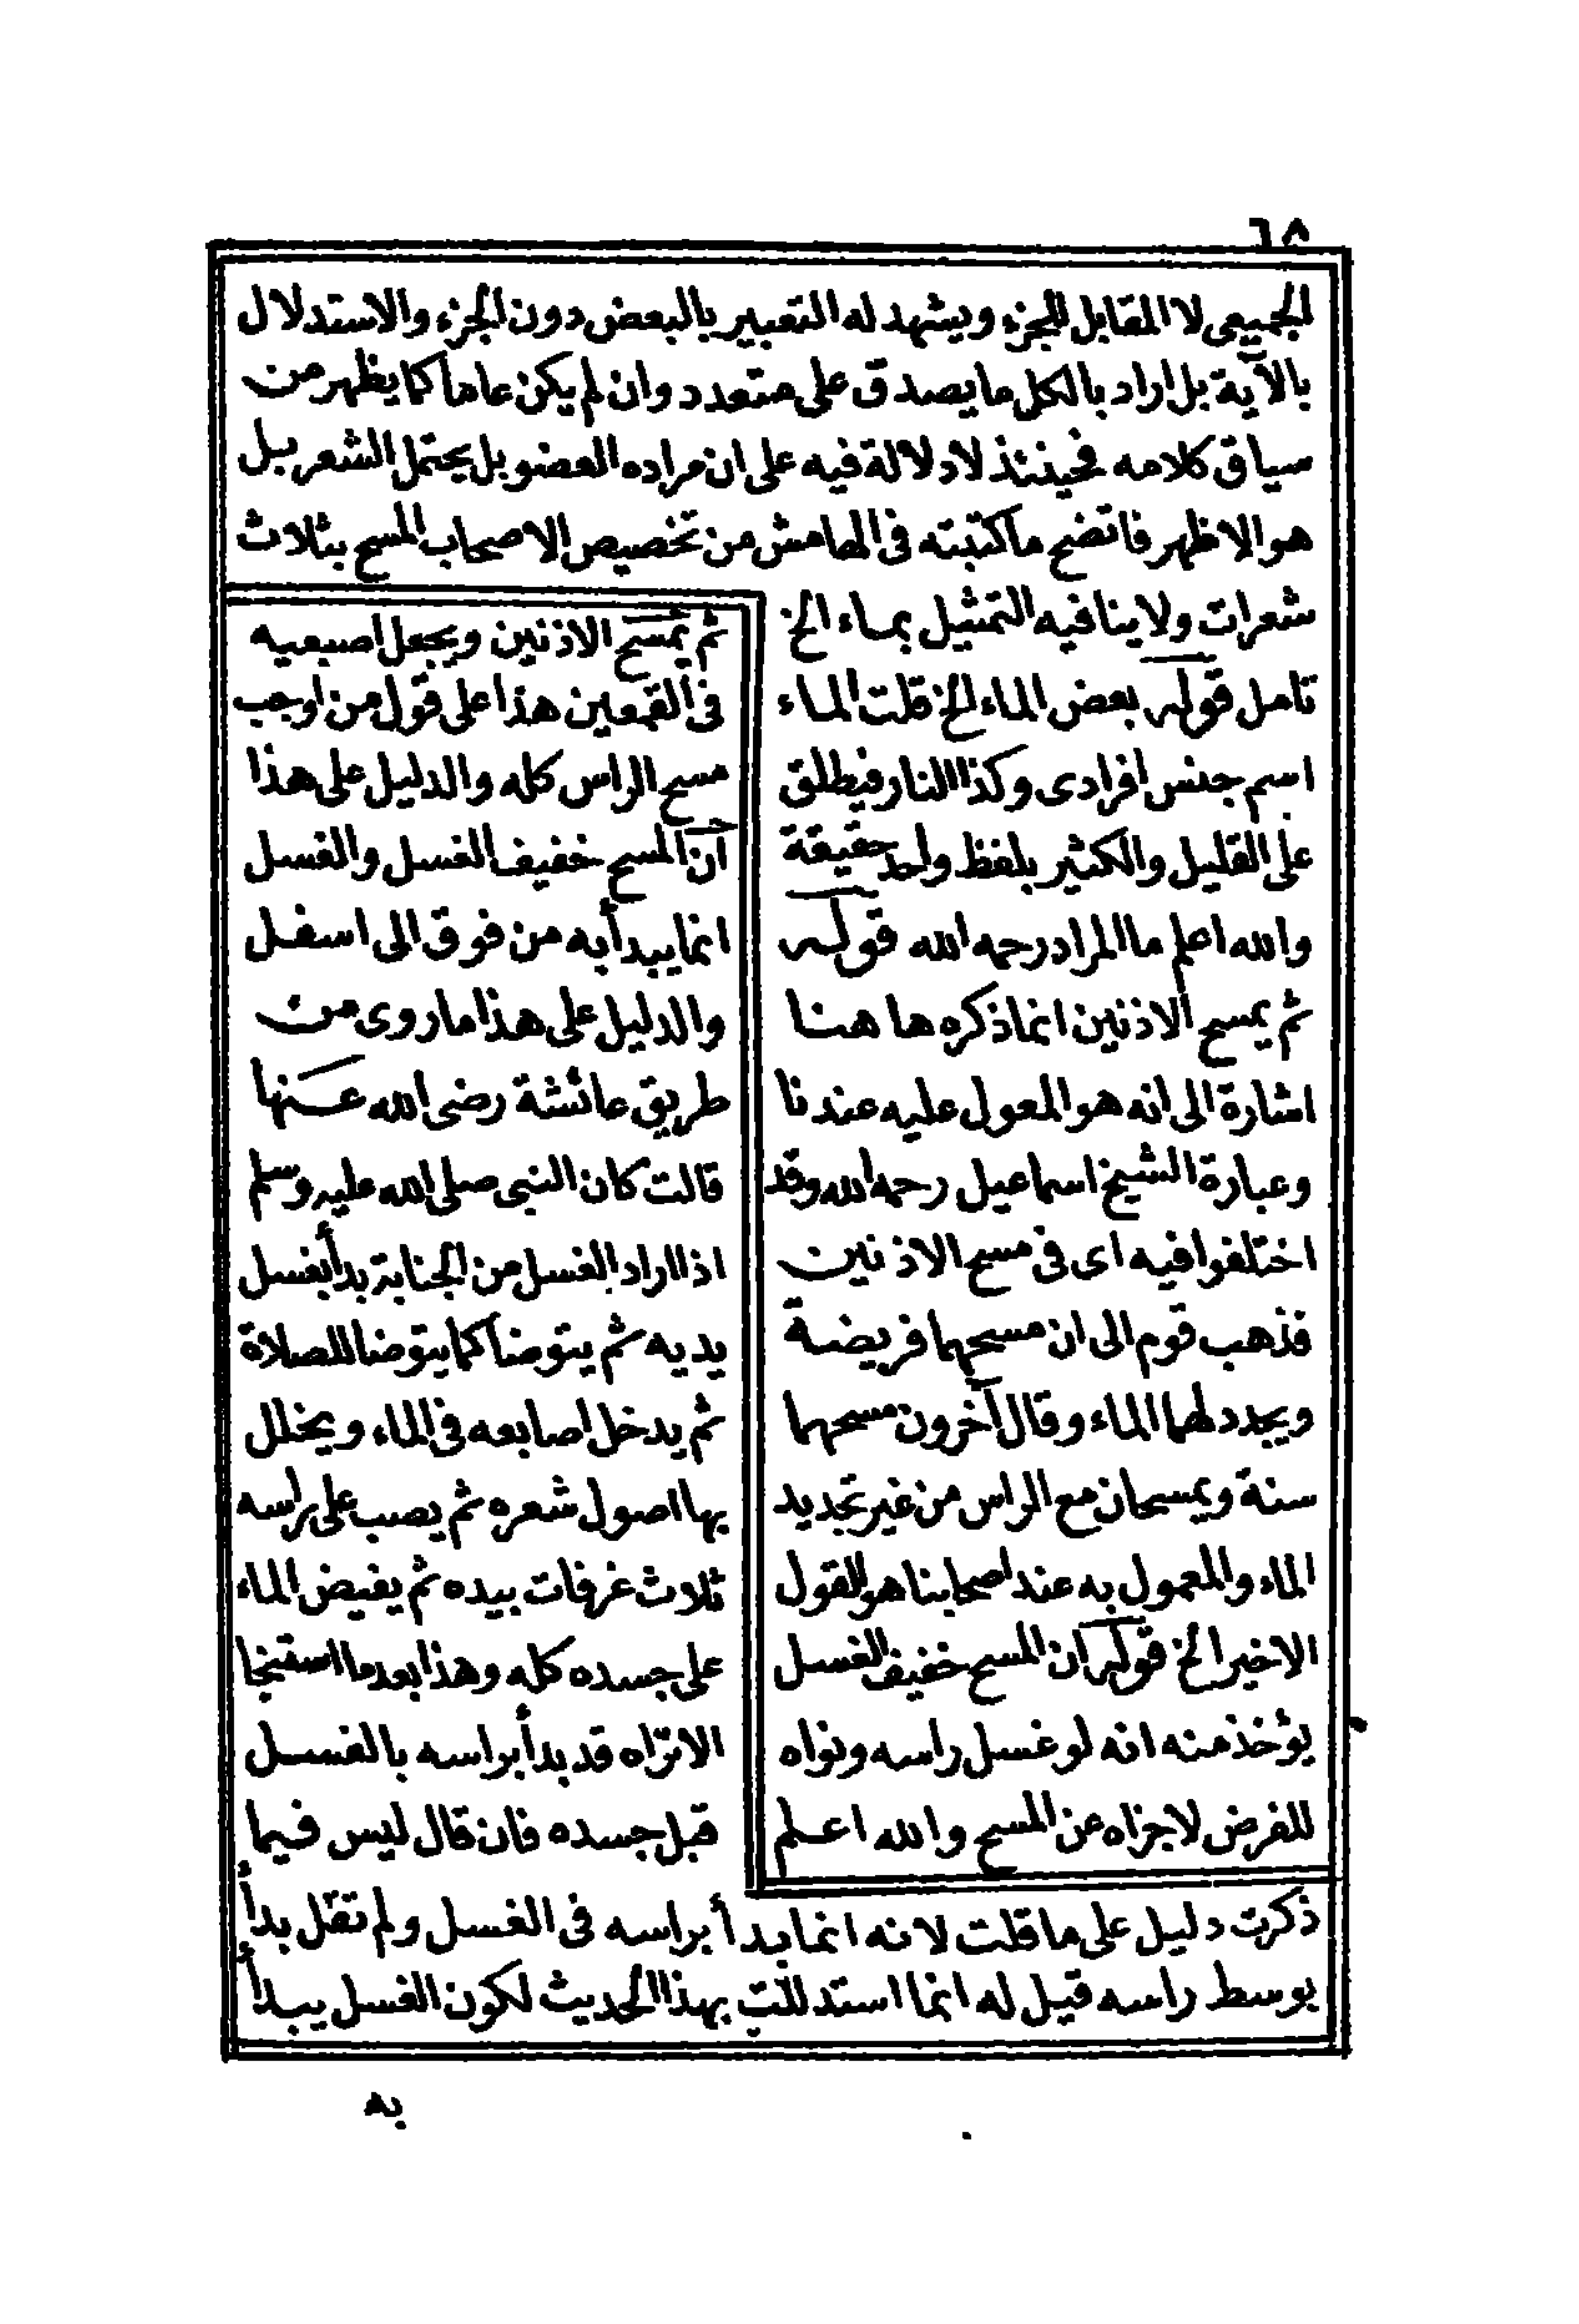 ٦٨
الجميعى لا المقابل للجزء ويشهد له التعبير بالبعض دون الجزء والاستدلال
بالآية بل اراد بالكل ما يصدق على متعدد وان لم يكن عاما كما يظهر من
سياق كلامه فحينئذ لا دلالة فيه على ان مراده العضو بل يحتمل الشعر بل
هو الاظهر فاتضح ما كتبته فى الهامش من تخصيص الاصحاب المسح بثلاث
شعرات ولا ينافيه التمثيل بماء الخ
تامل قوله بعض الماء الخ قلت الماء
اسم جنس افرادى وكذا النار فيطلق
على القليل والكثير بلفظ واحد حقيقة
والله اعلم ما المراد رحمه الله قوله
ثم يمسح الاذنين انما ذكره ها هنا
اشارة الى انه هو المعول عليه عندنا
وعبارة الشيخ اسماعيل رحمه الله وقد
اختلفوا فيه اى فى مسح الاذنين
فذهب قوم الى ان مسحهما فريضة
ويجدد لهما الماء وقال آخرون مسحهما
سنة ويمسحان مع الراس من غير تجديد
الماء والمعمول به عند اصحابنا هو القول
الاخير الخ قوله ان المسح خفيف الغسل
يؤخذ منه انه لو غسل راسه ونواه
للفرض لاجزاه عن المسح والله اعلم
ثم يمسح الاذنين ويجعل اصبعيه
فى القمعين هذا على قول من اوجب
مسح الراس كله والدليل على هذا
ان المسح خفيف الغسل والغسل
انما يبدأ به من فوق الى اسفل
والدليل على هذا ما روى من
طريق عائشة رضى الله عنها
قالت كان النبى صلى الله عليه وسلم
اذا اراد الغسل من الجنابة بدأ بغسل
يديه ثم يتوضا كما يتوضا للصلاة
ثم يدخل اصابعه فى الماء ويخلل
بها اصول شعره ثم يصب على راسه
ثلاث غرفات بيده ثم يفيض الماء
على جسده كله وهذا بعد ما استنجا
الا تراه قد بدأ براسه بالغسل
قبل جسده فان قال ليس فيما
ذكرت دليل على ما قلت لانه انما بدأ براسه فى الغسل ولم تقل بدأ
بوسط راسه قيل له انما استدللت بهذا الحديث لكون الغسل يبدأ
به